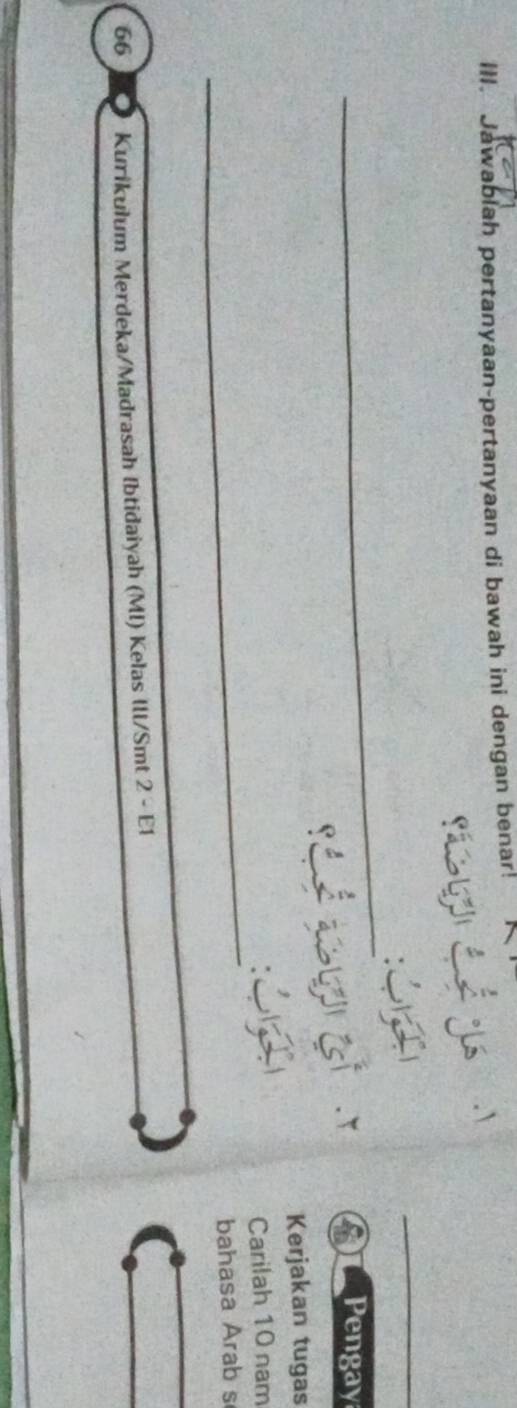 III. Jawablah pertanyaan-pertanyaan di bawah ini dengan benar!
١. هَلْ تُحِبُّ الرِّيَاضَةَ؟
الْجَوَابُ:
٢. أَيُّ الرِّيَاضَةِ تُحِبُّ؟
الْجَوَابُ:
66 Kurikulum Merdeka/Madrasah Ibtidaiyah (MI) Kelas III/Smt 2 - E1
Kerjakan tugas
Carilah 10
bahasa Arab